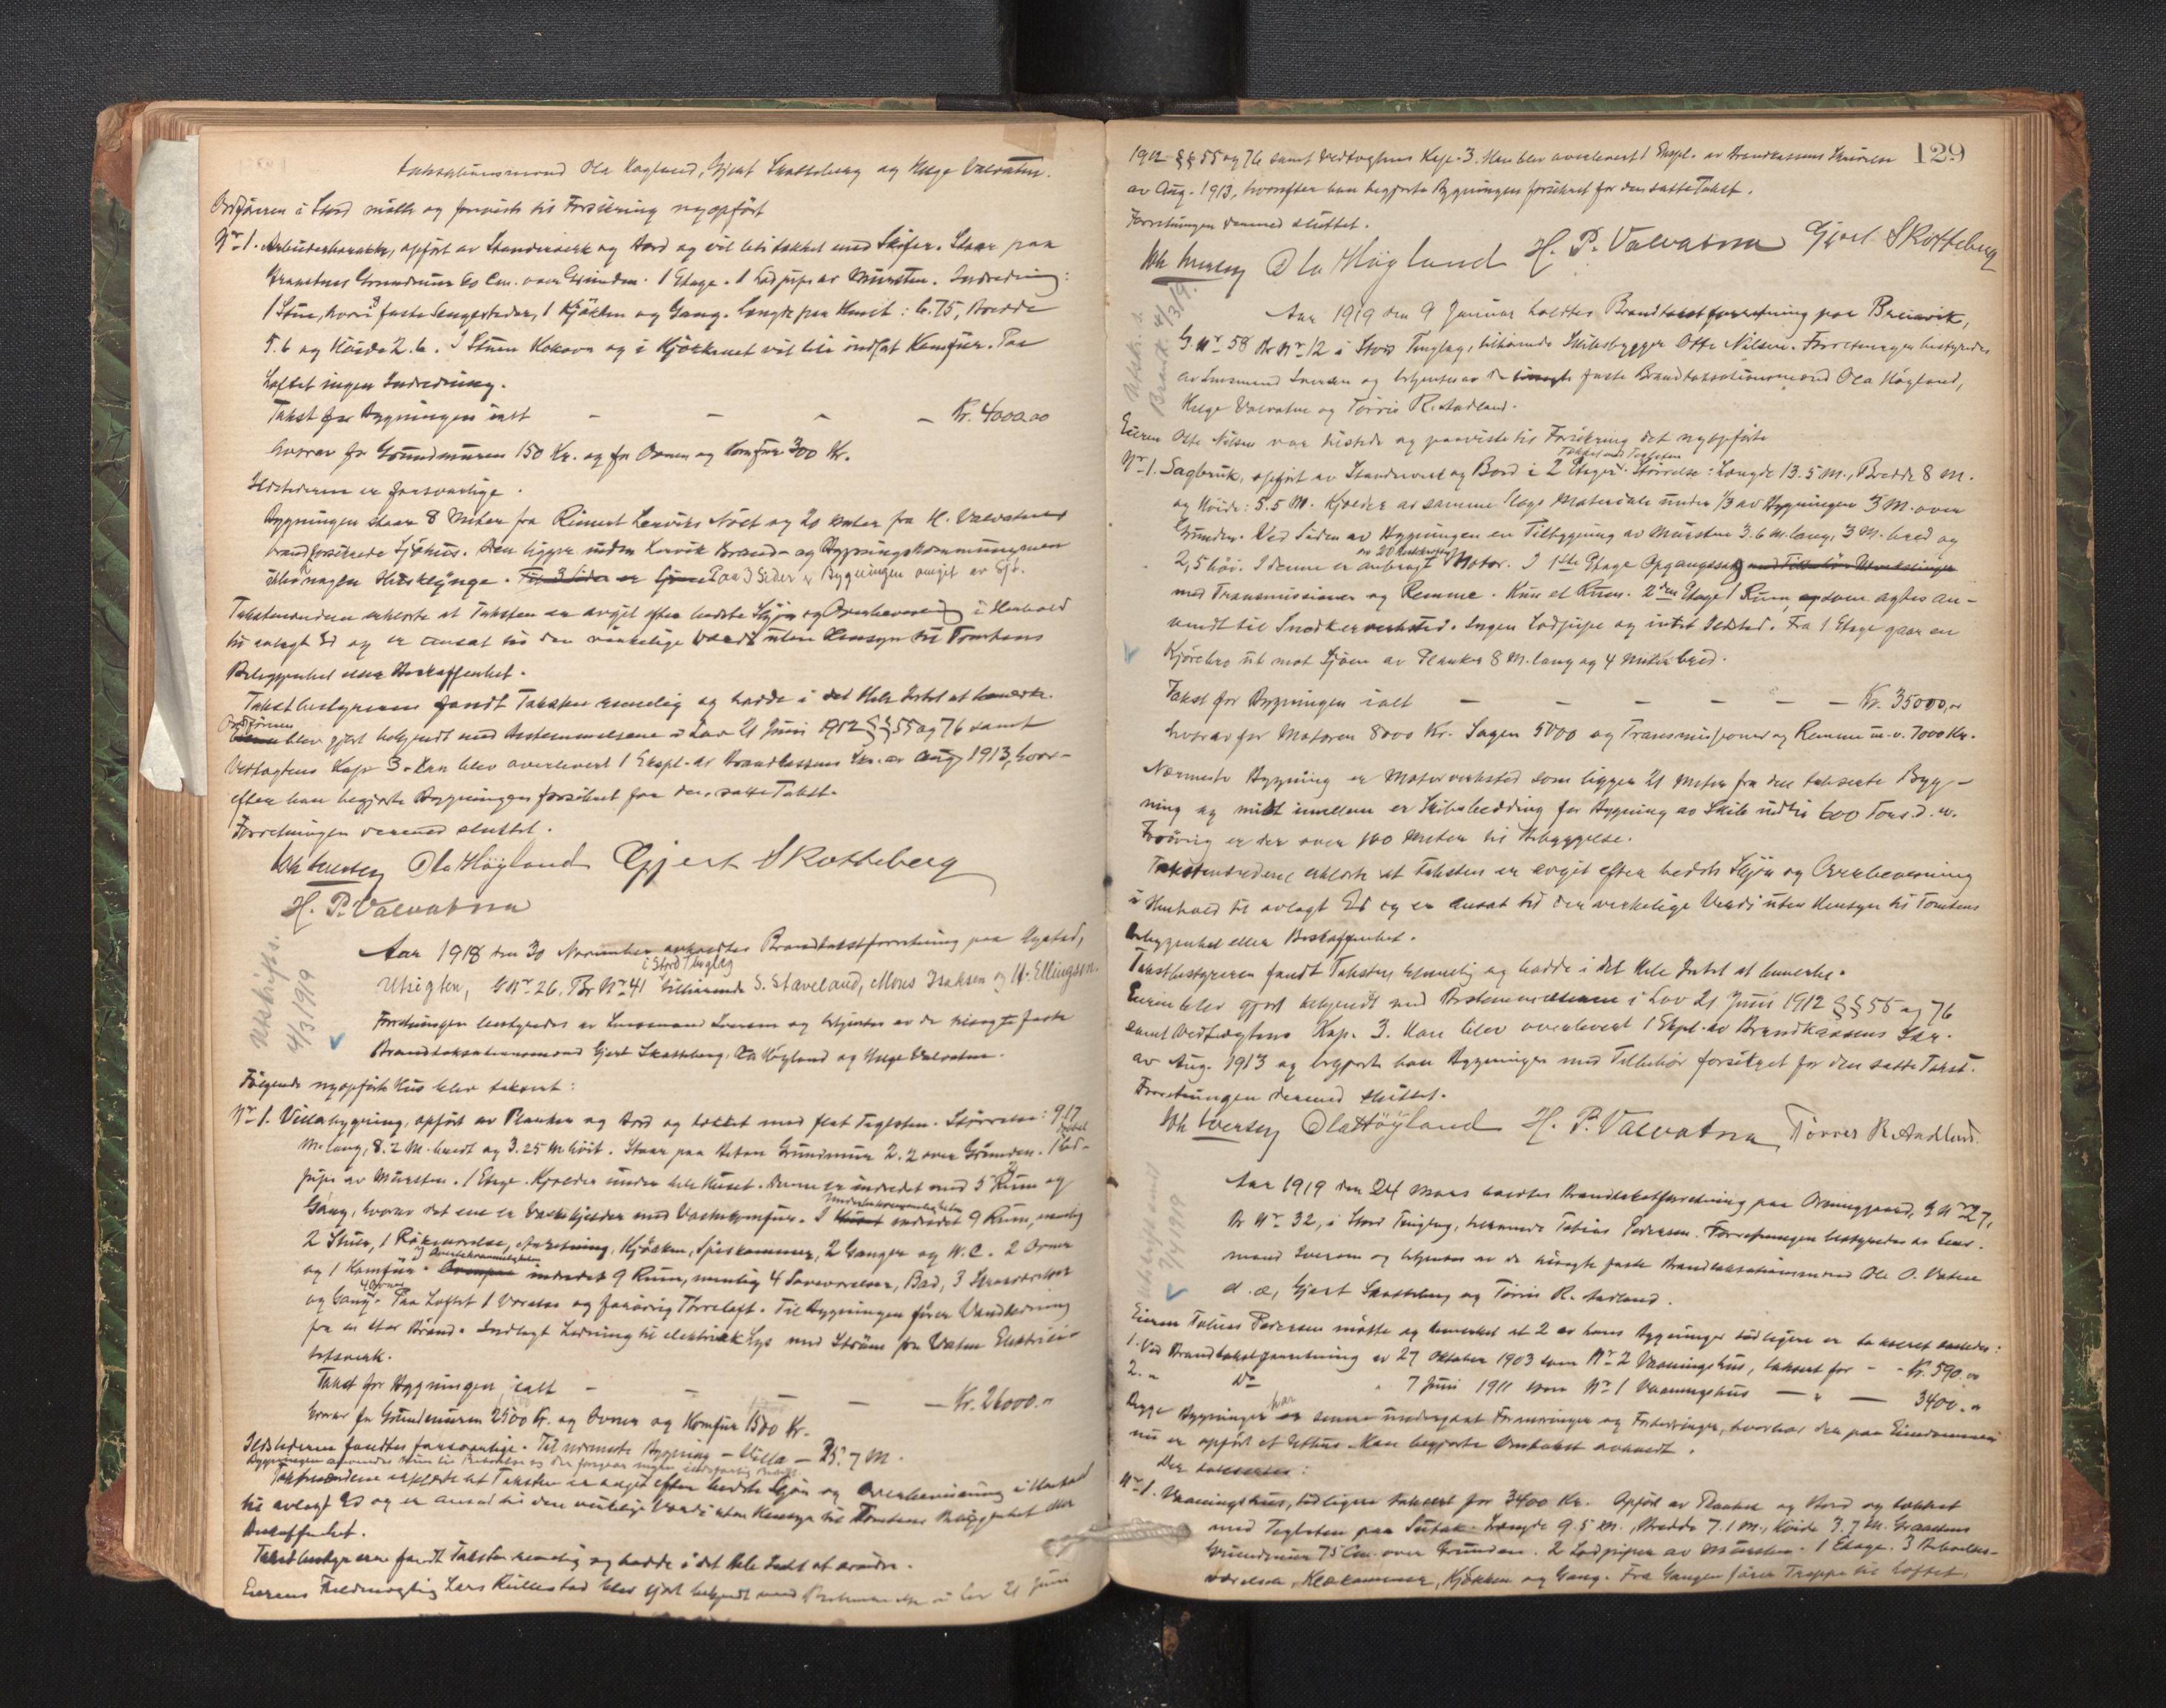 Taksationsmænd Ola Høgland, Gjert Skotteberg og Helge Valvatne.
Ordføreren i Stord møtte og paaviste til Forsikring nyopført
Nr 1. Arbeiderbarakke, opført av Stenderverk og Bord og vil bli tækket med Skifer. Staar paa
Graastens Grundmur 60 Cm. over Grunden. 1 Etage. 1 Lodpipe av Mursten. Indredning:
1 Stue, hvori 8 faste Sengesteder, 1 Kjøkken og Gang. Længde paa Huset: 6.75, Bredde
5.6 og Høide 2.6. I Stuen Kokovn og i Kjøkkenet vil bli indsat Komfur. Paa
Loftet ingen Indredning.
Takst for Bygningen ialt - - - - Kr. 4000.00
hvorav for Grundmuren 150 Kr. og for Ovnen og Komfur 300 Kr.
Ildstederne er forsvarlige.
Bygningen staar 8 Meter fra Rimert Lerviks Nøst og 20 Meter fra H. Valvatnes
brandforsikrede Sjøhus. Den ligger inden Lervik Brand- og Bygningskommune men
ikke i nogen Husklynge. Til 3 Sider er Paa 3 Sider er Bygningen omgit av Sjø.
Takstmændene erklærte at Taksten er avgit efter bedste Skjøn og Overbevisning i Henhold
til avlagt Ed og er ansat til den virkelige Værdi uten Hensyn til Tomtens
Beliggenhet eller Beskaffenhet.
Takstbestyreren fandt Taksten rimelig og hadde i det Hele Intet at bemerke.
Ordføreren
blev gjort bekjendt med Bestemmelsene i Lov 21 Juni 1912 §§ 55 og 76 samt
Vedtægtens Kap 3. Han blev overlevert 1 Expl. av Brandkassens Skr. av Aug 1913, hvor-
efter han begjærte Bygningen forsikret for den satte Takst.
Forretningen dermed sluttet.
Joh Iversen Ola Høyland Gjert Skotteberg
H. P. Valvatna
Utskrifts. 4/3 1919
Aar 1918 den 30 November avholdtes Brandtakstforretning paa Nysted,
i Stord Tinglag
Utsigten, G Nr 26, Br Nr 41 tilhørende S. Staveland, Mons Isaksen og H. Ellingson.
Forretningen bestyredes av Lensmand Iversen og betjentes av de tilsagte faste
Brandtaksationsmænd Gjert Skotteberg, Ola Høyland og Helge Valvatne.
Følgende nyopførte Hus blev taksert:
Nr 1. Villabygning, opført av Planker og Bord og tækket med flat Teglsten. Størrelse: 9.17
M. lang, 8.2 M. bredt og 3.25 M høit. Staar paa Beton Grundmur 2.2 over Grunden. 1 dobbel Lod-
pipe av Mursten. 1 Etage. Kjelder under hele Huset. Denne er indredet med 5 Rum og
Gang, hvorav det ene er Vaskekjelder med Vaskekomfur. I Underleiligheten indredet 9 Rum, nemlig
2 Stuer, 1 Røkværelse, Anretning, Kjøkken, Spiskammer, 2 Ganger og W.C. 2 Ovner
og 1 Komfur. I Overleiligheten indredet 9 Rum, nemlig 4 Soveværelser, Bad, 3
og Gang. 4 Ovner. Paa Loftet 1 Værelse og forøvrig Tørreloft. Til Bygningen fører Vandledning
fra en stor Brønd. Indlagt Ledning til elektrisk Lys med Strøm fra Vatne Elektrici-
tetsverk.
Takst for Bygningen ialt - - - - Kr. 26000.00
hvorav for Grundmuren 2500 Kr. og Ovner og Komfur 1500 Kr.
Ildstederne fandtes forsvarlige. Til nærmeste Bygning - Villa - 25.7 M.
Bygningen anvendes kun til Beboelse og der foregaar ingen ildsfarlig Bedrift.
Takstmændene erklærte at Taksten er avgit efter bedste Skjøn og Overbevisning i Henhold
til avlagt Ed og er ansat til den virkelige Værdi uten Hensyn til Tomtens Beliggenhet eller
Beskaffenhet.
Takstbestyreren fandt Taksten rimelig og hadde i det Hele Intet at ændre.
Eierens Fuldmægtig Lars Rullestad blev gjort bekjendt med Bestemmelsene i Lov 21 Juni
129
1912 §§ 55 og 76 samt Vedtægtens Kap. 3. Han blev overlevert 1 Expl. av Brandkassens Skrivelse
av Aug. 1913, hvorefter han begjærte Bygningen forsikret for den satte Takst.
Forretningen dermed sluttet.
Joh Iversen Ola Høyland H. P. Valvatna Gjert Skotteberg
Utskr. s. Brandk. 4/3 19.
Aar 1919 den 9 Januar holdtes Brandtakstforretning paa Breivik,
G Nr 58 Br Nr 12 i Stord Tinglag, tilhørende Skibsbygger Otto Nilsen. Forretningen bestyredes
av Lensmand Iversen og betjentes av de faste Brandtaksationsmænd Ola Høyland,
Helge Valvatne og Tørris R. Aadland.
Eieren Otto Nilsen var tilstede og paaviste til Forsikring det nyopførte
Tækket med Teglsten
Nr 1. Sagbruk, opført av Stenderverk og Bord i 2 Etager. Størrelse: Længde 13.5 M., Bredde 8 M.
og Høide: 5.5 M. Kjelder av samme Slags Materiale under 1/3 av Bygningen 3 M. over
Grunden. Ved Siden av Bygningen en Tilbygning av Mursten 3.6 M. lang, 3 M. bred og
2,5 høi. I denne er anbragt en 20 Hestekrafts Motor. I 1ste Etage Opgangssag
med Transmissioner og Remme. Kun et Rum. 2den Etage 1 Rum, som agtes an-
vendt til Snedkerverksted. Ingen Lodpipe og intet Ildsted. Fra 1 Etage gaar en
Kjørebro ut mot Sjøen av Planker 8 M. lang og 4 Meter bred.
Takst for Bygningen ialt - - - - - - Kr. 35000,00
hvorav for Motoren 8000 Kr. Sagen 5000 og Transmissioner og Remme m.v. 7000 Kr.
Nærmeste Bygning er Motorverksted som ligger 21 Meter fra den takserte Byg-
ning og midt imellem er Skibsbedding for Bygning av Skib indtil 600 Tons d.w.
Forøvrig er der over 100 Meter til Bebyggelse.
Takstmændene erklærte at Taksten er avgit efter bedste Skjøn og Overbevisning
i Henhold til avlagt Ed og er ansat til den virkelige Verdi uten Hensyn til Tomtens
Beliggenhet eller Beskaffenhet.
Takstbestyreren fandt Taksten rimelig og hadde i det Hele Intet at bemerke.
Eieren blev gjort bekjendt med Bestemmelsene i Lov 21 Juni 1912 §§ 55 og 76
samt Vedtægtens Kap. 3. Han blev overlevert 1 Expl. av Brandkassens Skr.
av Aug. 1913 og begjærte han Bygningen med Tilbehør forsikret for den satte Takst.
Forretningen dermed sluttet.
Joh Iversen Ola Høyland H. P. Valvatna Tørres R. Aadland.
Utskrift sendt 7/4 1919
Aar 1919 den 24 Mars holdtes Brandtakstforretning paa Orninggaard, G Nr 27,
Br Nr 32, i Stord Tinglag, tilhørende Tobias Pedersen. Forretningen bestyredes av Lens-
mand Iversen og betjentes av de tilsagte faste Brandtaksationsmænd Ole O. Vatne
d. æ, Gjert Skotteberg og Tørris R. Aadland.
Eieren Tobias Pedersen møtte og bemerket at 2 av hans Bygninger tidligere er takseret saaledes:
1. Ved Brandtakstforretning av 27 Oktober 1903 som Nr 2 Vaaningshus, taksert for - - Kr. 590.00
2. " Do " 7 Juni 1911 som Nr 1 Vaaningshus - " - 3400. "
Begge Bygninger har senere undergaat Forandringer og Forbedringer, hvorhos der paa Eiendommen
nu er opført et Uthus. Han begjærte Omtakst avholdt.
Der taksertes:
Nr 1. Vaaningshus, tidligere taksert for 3400 Kr. Opført av Planker og Bord og tækket
med Teglsten paa Sutak. Længde 9.5 M., Bredde 7.1 M., Høide 3.7 M. Graastens
Grundmur 75 Cm. over Grunden. 2 Lodpiper av Mursten. 1 Etage. 3 Beboelses-
værelser, Klækammer, Kjøkken og Gang. Fra Gangen fører Trappe til Loftet.